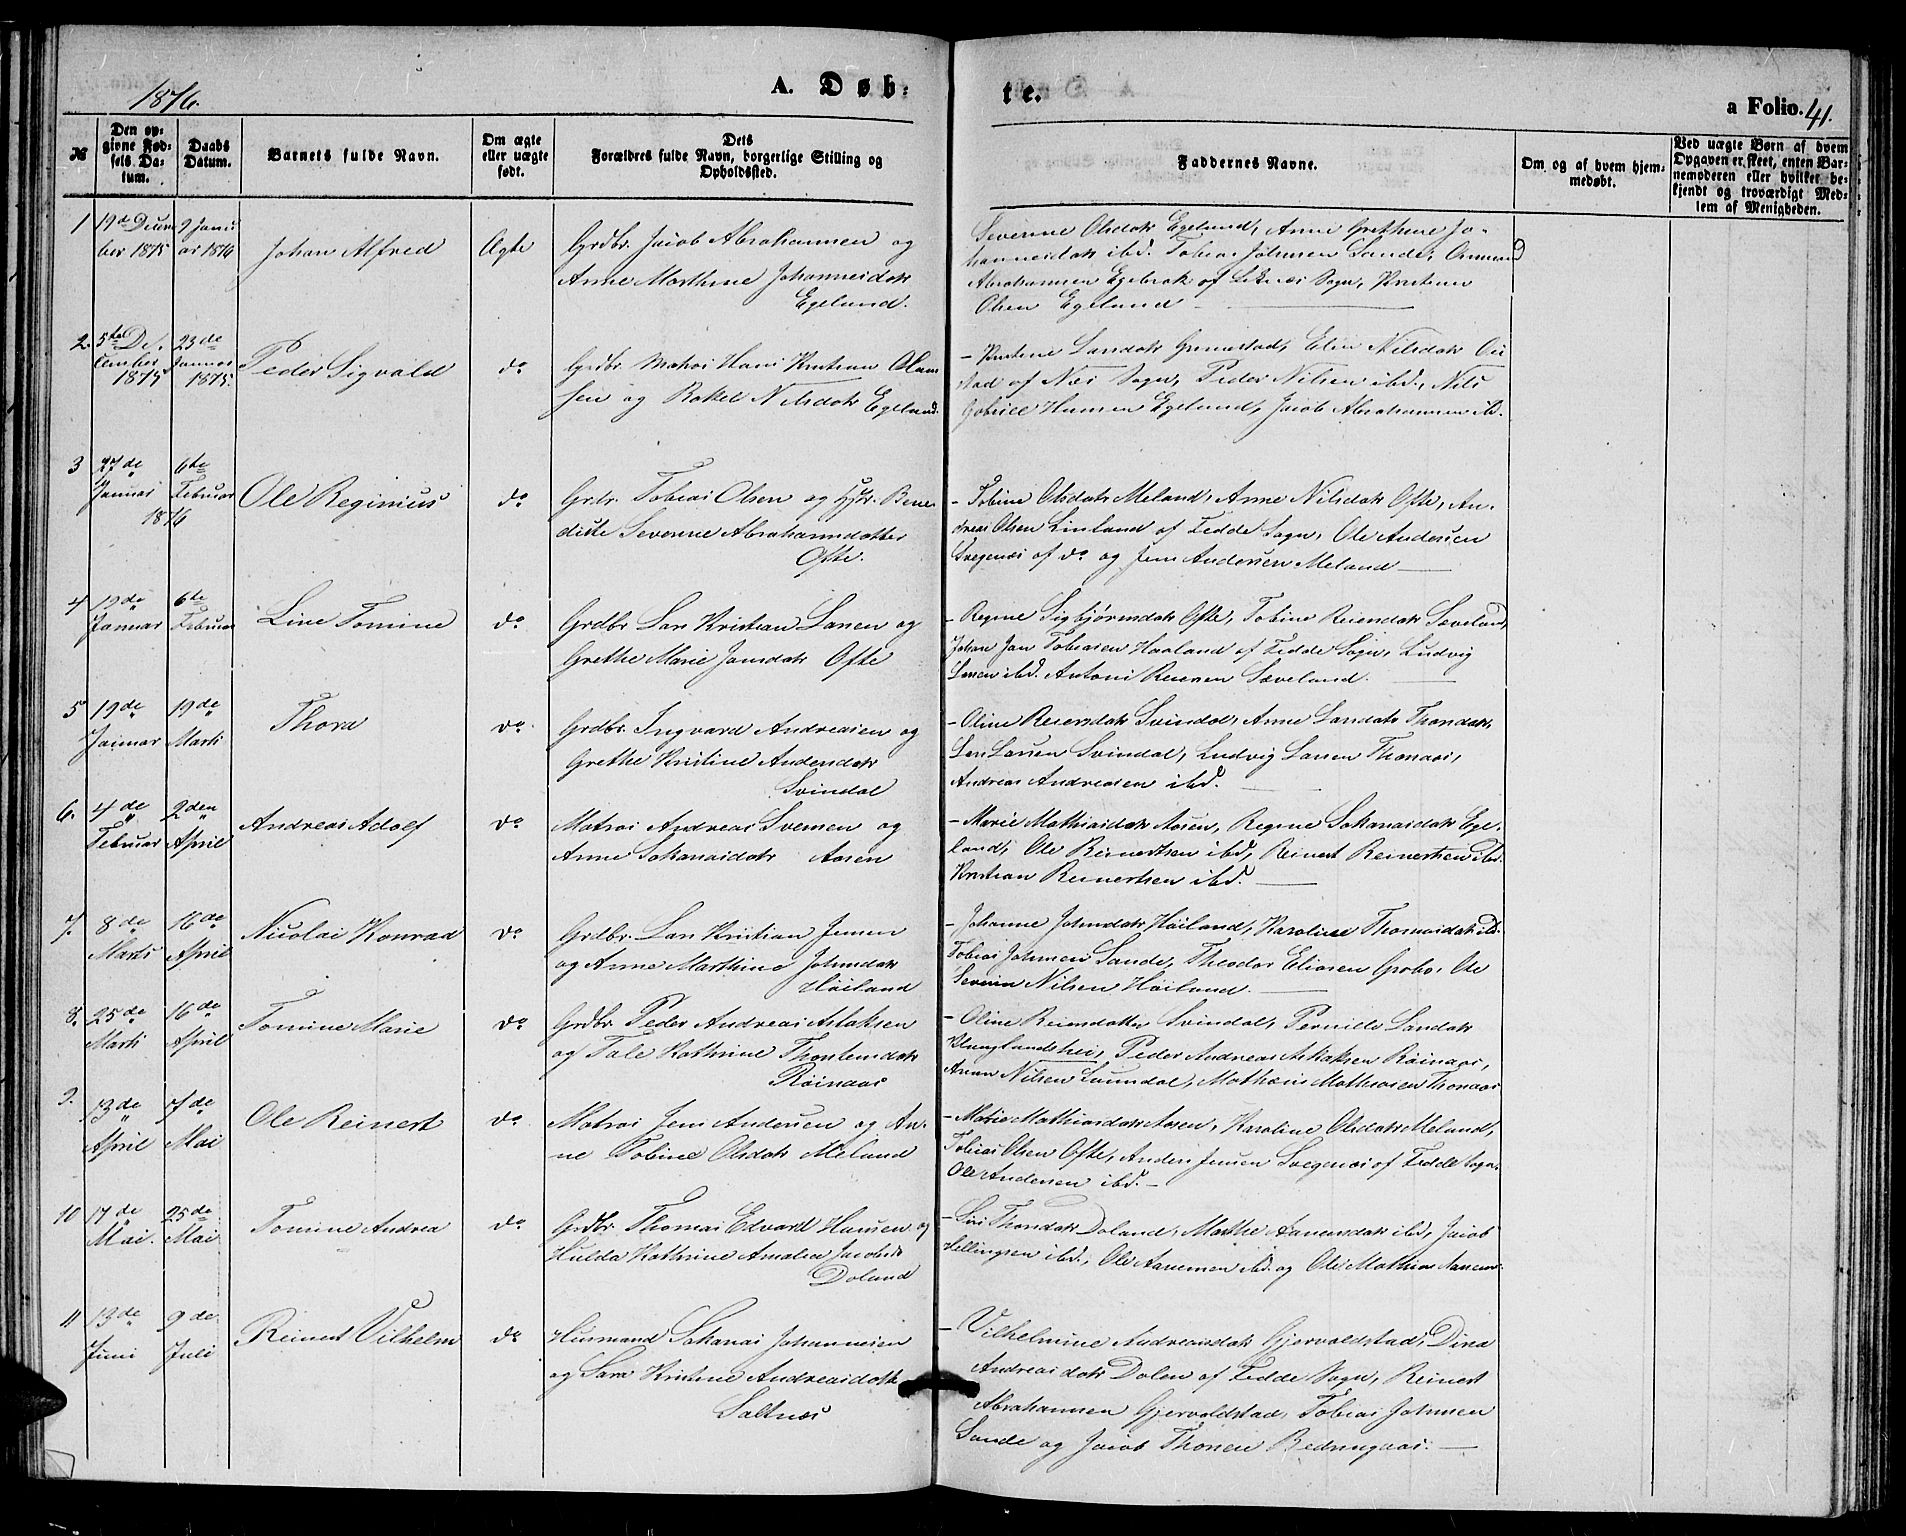 1876.
A. Døb-
te.
a Folio. 41.
№
Den op-
givne Fød-
sels Da-
tum.
Daabs
Datum.
Barnets fulde Navn.
Om ægte
eller uægte
født.
Dets
Forældres fulde Navn, borgerlige Stilling og
Opholdssted.
Faddernes Navne.
Om og af hvem hjem-
medøbt.
Ved uægte Børn af hvem
Opgaven er skeet, enten Bar-
nemoderen eller hvilket be-
kjendt og troværdigt Med-
lem af Menigheden.
1
19de Decem
ber 1875
9 Janu
ar 1876
Johan Alfred
Ægte
Grdbr. Jacob Abrahamsen og
Anne Marthine Johannesdatr
Egeland.
Severine Olsdatr Egeland, Anne Grethine Jo-
hannesdatr ibd. Tobias Johnsen Sande, Osmund
Abrahamsen Egebrok af Sogn, Kristen
Olsen Egeland
2.
5te De-
cember
1875
23de
Januar
1875.
Peder Sigvald
do
Grdbr Matros Hans Kristian Olaus
sen og Rakel Nilsdatr Egeland.
- Kristine Larsdatr Grimestad, Elin Nilsdatr
stad af Næs Sogn, Peder Nilsen ibd., Nils
Gabriel Hansen Egeland, Jacob Abrahamsen ib.
3
27de
Januar
1876
6te
Februar
Ole Reginius
do
Grbr. Tobias Olsen og Hstr. Bene
dicte Severine Abrahamsdatter
Ofte.
- Tobine Olsdatr Meland, Anne Nilsdatr Ofte, An-
dreas Olsen Linland af Fedde Sogn, Ole Andersen
Svegenæs af do og Jens Andersen Meland
4
19de
Januar
6te
Februar
Line Tomine
do
Grdbr Lars Kristian Larsen og
Grethe Marie Jansdatr Ofte
- Regine Sigbjørnsdatr Ofte, Tobine Reiersdatr Sæveland,
Johan Jan Tobiasen Haaland af Fedde Sogn, Ludvig
Larsen ibd. Antoni Reiersen Sæveland.
5
19de
Januar
19de
Marts
Thora
do
Grdbr. Ingvard Andreasen og
Grethe Kristine Andersdatr
Svindal
- Oline Reiersdatr Svindal, Anne Larsdatr
Lars Larsen Svindal, Ludvig Larsen Thonaas,
Andreas Andreasen ibd.
6.
4de
Februar
2den
April
Andreas Adolf
do
Matros Andreas Svensen og
Anne Sakariasdatr Aasen
- Marie Mathiasdatr Aasen, Regine Sakariasdatr Ege-
land, Ole Reinertsen ibd, Reinert Reinertsen ibd.
Kristian Reinertsen ibd.
7.
8de
Marts
16de
April
Nicolai Konrad
do
Grdbr. Lars Kristian Jensen
og Anne Marthine Johnsdatr
Høiland
- Johanne Johnsdatr Høiland, Karoline Thomasdatr ibd.
Tobias Johnsen Sande, Theodor Eliasen Grobo, Ole
Severin Nilsen Høiland.
8.
25de
Marts
16de
April
Tomine Marie
do
Grdbr. Peder Andreas Aslaksen
og Tale Kathrine Thorstensdatr
Røinaas
- Oline Reiersdatter Svindal, Pernille Larsdatr
Peder Andreas Aslaksen Røinaas,
Nilsen Mathias Mathiasen Thonaas
9.
13de
April
7de
Mai
Ole Reinert
do
Matros Jens Andersen og An-
ne Tobine Olsdatr Meland
- Marie Mathiasdatr Aasen, Karoline Olsdatr Meland,
Tobias Olsen Ofte, Anders Jensen Svegenæs af Fedde Sogn.
Ole Andersen ibd. -
10
17de
Mai.
25de
Mai
Tomine Andrea
do
Grdbr. Thomas Edvard Hansen og
Hulda Kathrine Amalia Jacobsdr
Doland
- Siri Doland, Marthe Aanensdatr ibd, Jacob
Hellingsen ibd., Ole Aanensen ibd. og Ole Mathias Aanens.
11
13de
Juni
9de
Juli
Reinert Vilhelm
do
Husmand Sakarias Johannesen
og Sara Kristine Andreasdatr
Saltnæs
- Vilhelmine Andreasdatr Gjervoldstad, Dina
Andreasdatr Dalen af Fedde Sogn, Reinert
Abrahamsen Gjervoldstad, Tobias Johnsen
Sande og Jacob Rednugaas.